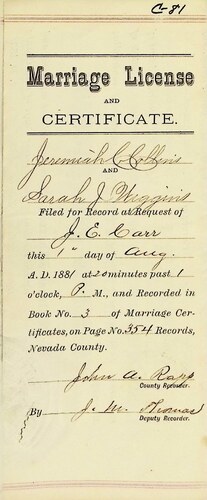 C-81
Marriage License
AND
CERTIFICATE.
Jeremiah C. Collins
AND
Sarah J Higgins
Filed for Record at Request of
J. E. Carr
this 1st day of Aug.
A. D. 1881 at 20 minutes past 1
o'clock, P. M., and Recorded in
Book No. 3 of Marriage Cer-
tificates, on Page No. 354 Records,
Nevada County.
John A. Rapp
County Recorder.
By J. M. Thomas
Deputy Recorder.